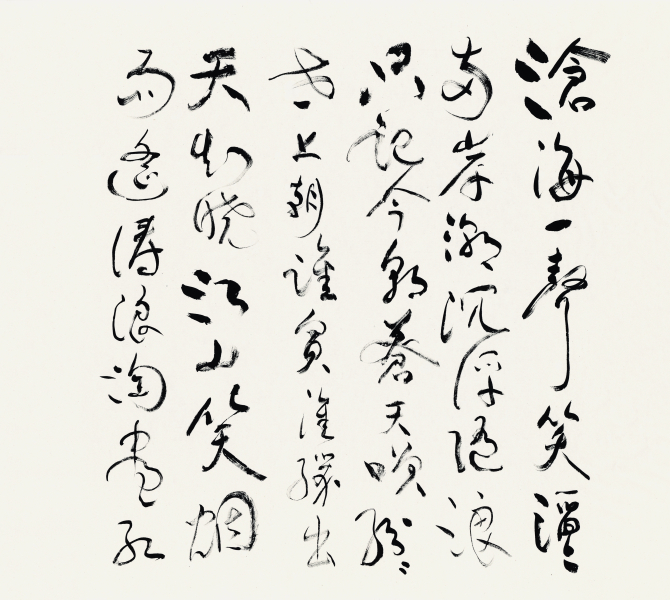 滄海一聲笑滔〻
兩岸潮沉浮隨浪
只記今朝蒼天咲紛〻
世上潮誰負誰勝出
天知曉江山笑烟
雨遙濤浪淘盡紅